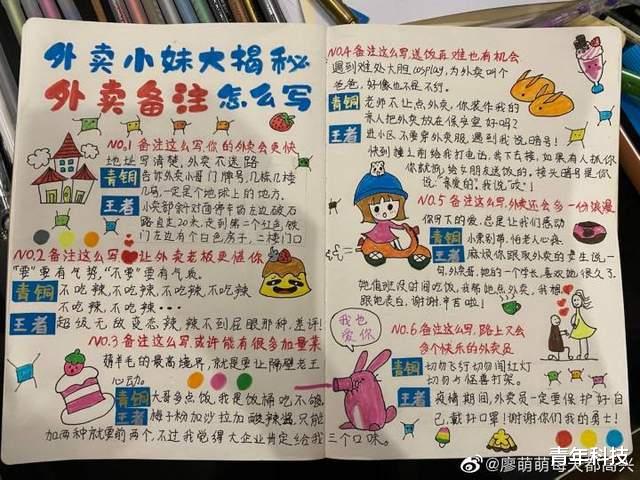 外卖小妹大揭秘
外卖备注怎么写
NO.1 备注这么写,你的外卖会更快
地址写清楚,外卖不迷路
青铜 告诉外卖小哥门牌号,几栋几楼
几号,一定是个地球上的地方。
王者 小卖部斜对面停车场左边破石
路直走20米,走到第二个红色铁
门左边有个白色房子,二楼门口
NO.2 备注这么写 让外卖老板更懂你
"要"要有气势,"不要"要有气质。
青铜 不吃辣,不吃辣,不吃辣,不吃辣
不吃辣,不吃辣…
王者 超级无敌变态辣,辣不到屁眼那种,差评!
NO.3 备注这么写,或许能有很多加量菜
薅羊毛的最高境界,就是要让隔壁老王
心动。
青铜 大哥多点饭,我是饭桶吃不够
王者 梅子粉加沙拉加酸辣酱,只能
加两种就要前两个,不过我觉得大企业肯定给我
三个口味。
NO.4 备注这么写,送饭再难也有机会
遇到难处大胆cosplay,为外卖叫个
爸爸,好像也不是不行。
青铜 老师不让点外卖,你装作我的
亲人把外卖放在保安室好吗?
王者 进小区不要穿外卖服,遇到我说暗号!
快到楼上前给我打电话,我下去接,如果有人抓你
你就说,给女朋友送饭的。接头暗号是你
说"亲爱的",我说"哎"!
NO.5 备注这么写,外卖还会多一份浪漫
你写下的爱,总是让我们感动
青铜 小票别带,怕老人心疼
王者 麻烦你跟取外卖的女生说一
句,外卖哥,她的一个学长,喜欢她很久了。
她值班没时间吃饭,我帮她点外卖,我想
跟她表白,谢谢,辛苦啦!
我也
爱你
NO.6 备注这么写,路上又会
多个快乐的外卖员
青铜 切勿飞行切勿闯红灯
切勿与怪兽打架。
王者 疫情期间,外卖员一定要保护好自
己,戴好口罩!谢谢你们我的勇士!
@廖萌萌每天都高兴
青年科技